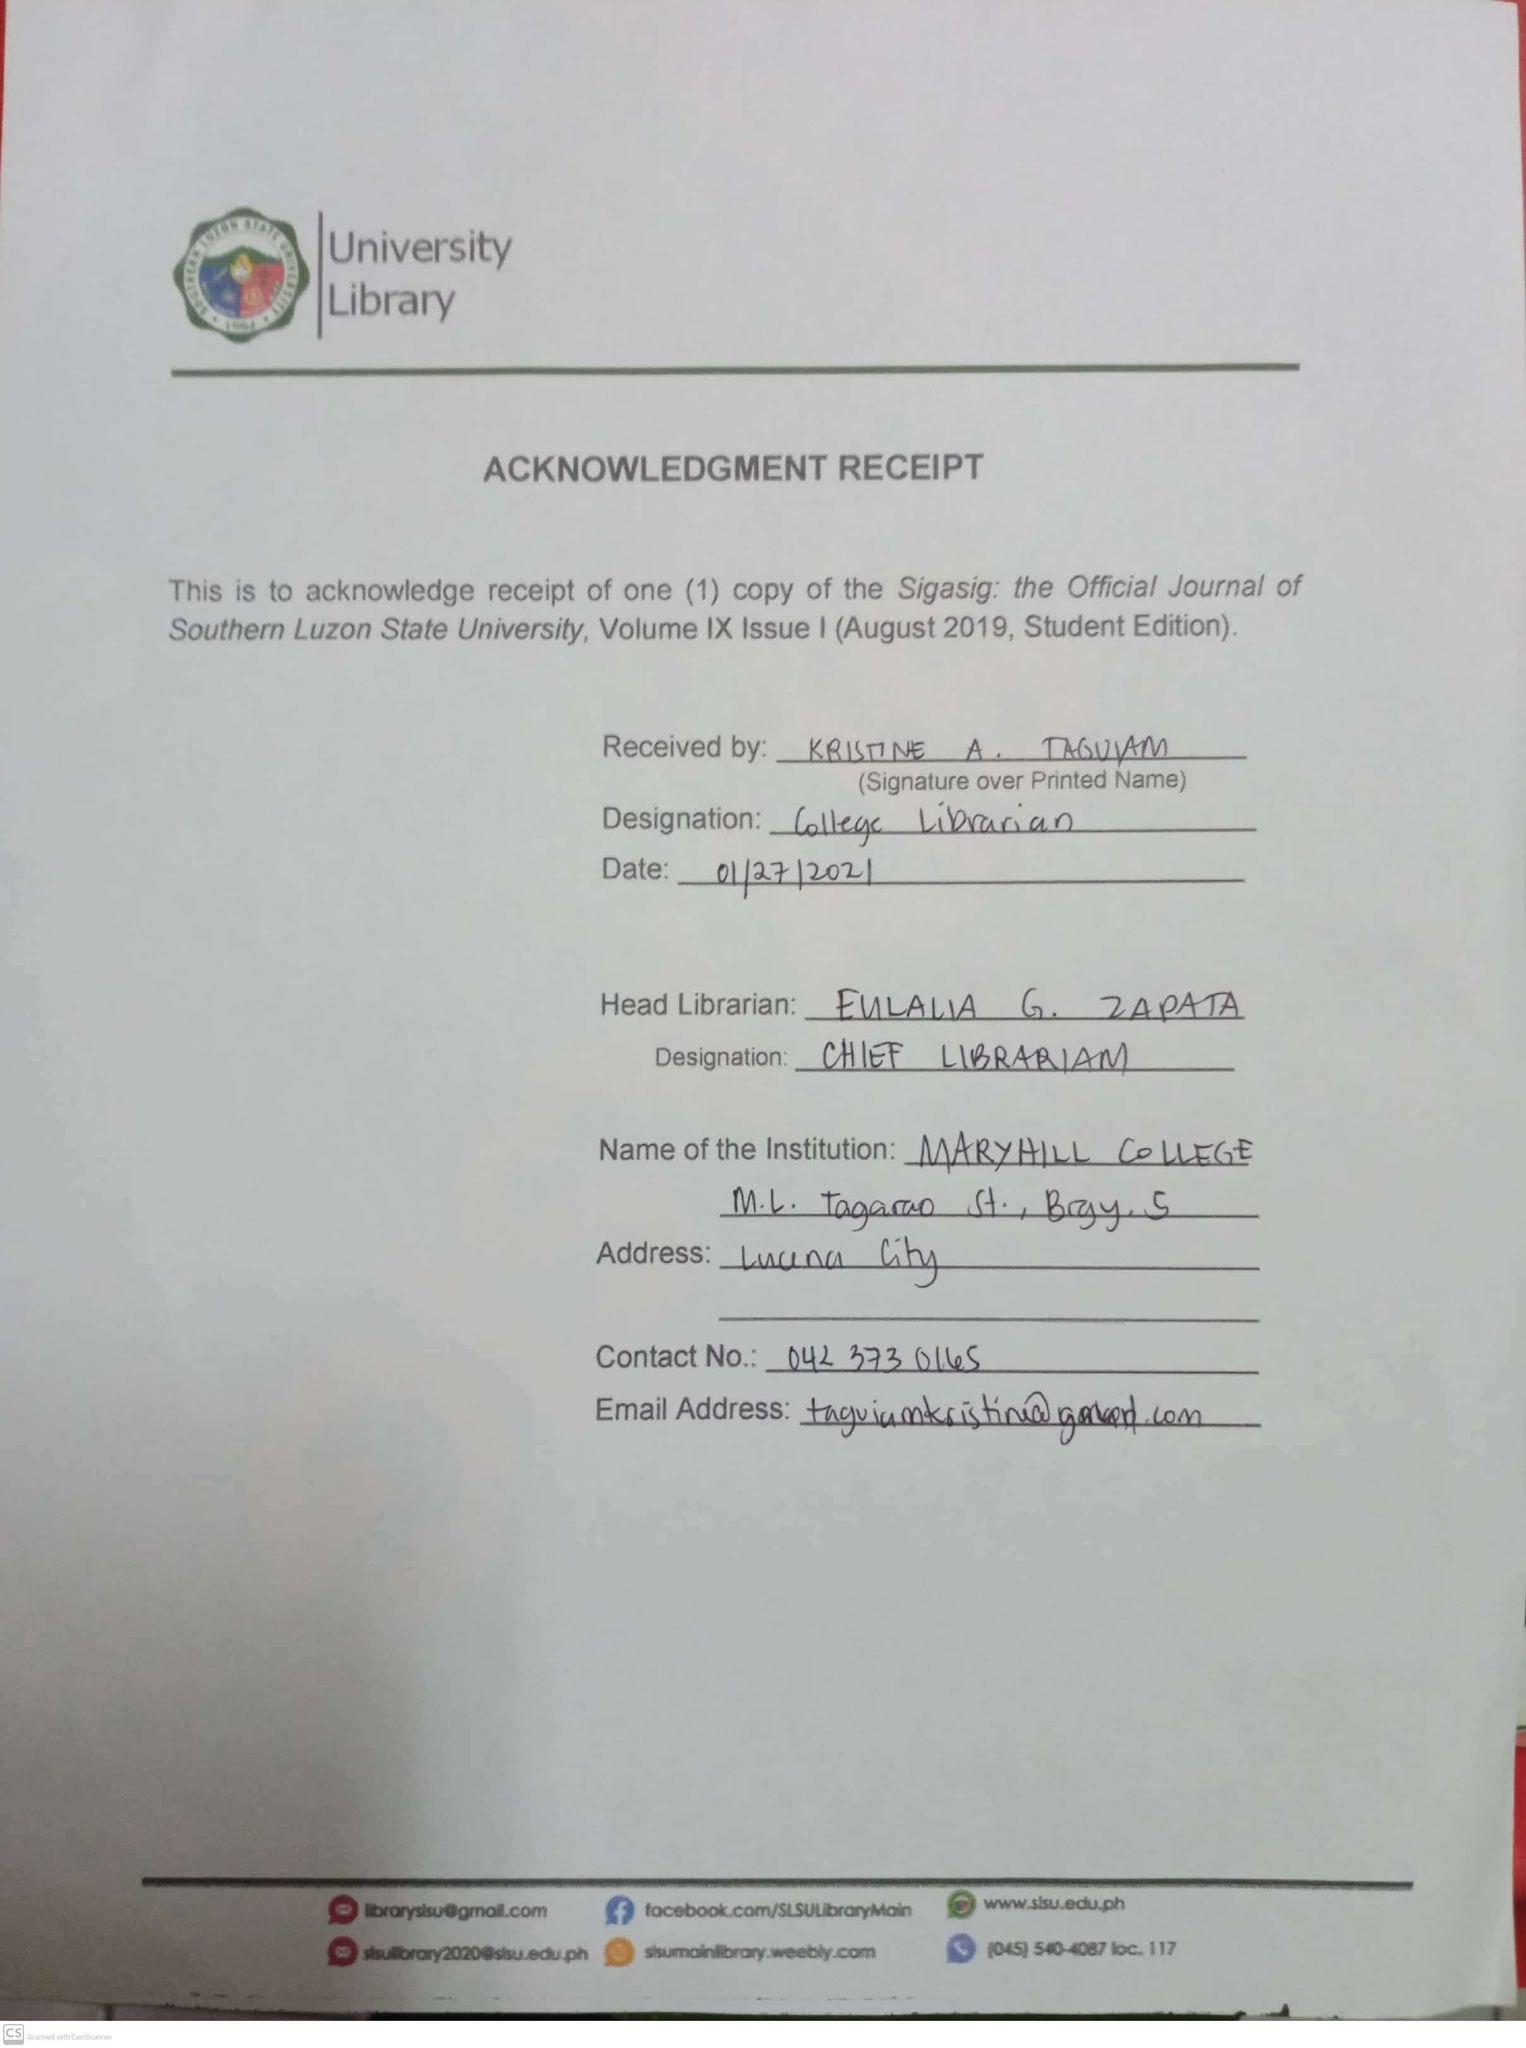 SOUTHERN LUZON STATE UNIVERSITY
1964
University
Library
ACKNOWLEDGMENT RECEIPT
This is to acknowledge receipt of one (1) copy of the Sigasig: the Official Journal of
Southern Luzon State University, Volume IX Issue I (August 2019, Student Edition).
Received by: KRISTINE A. TAGUIAM
(Signature over Printed Name)
Designation: College Librarian
Date: 01/27/2021
Head Librarian: EULALIA G. ZAPATA
Designation: CHIEF LIBRARIAM
Name of the Institution: MARYHILL COLLEGE
M.L. Tagarao St., Brgy. 5
Address: Lucena City
Contact No.: 042 373 0165
Email Address:
libraryslsu@gmail.com facebook.com/SLSULibraryMain www.slsu.edu.ph
slsulibrary2020@slsu.edu.ph slsumainlibrary.weebly.com (045) 540-4087 loc. 117
CS Scanned with CamScanner